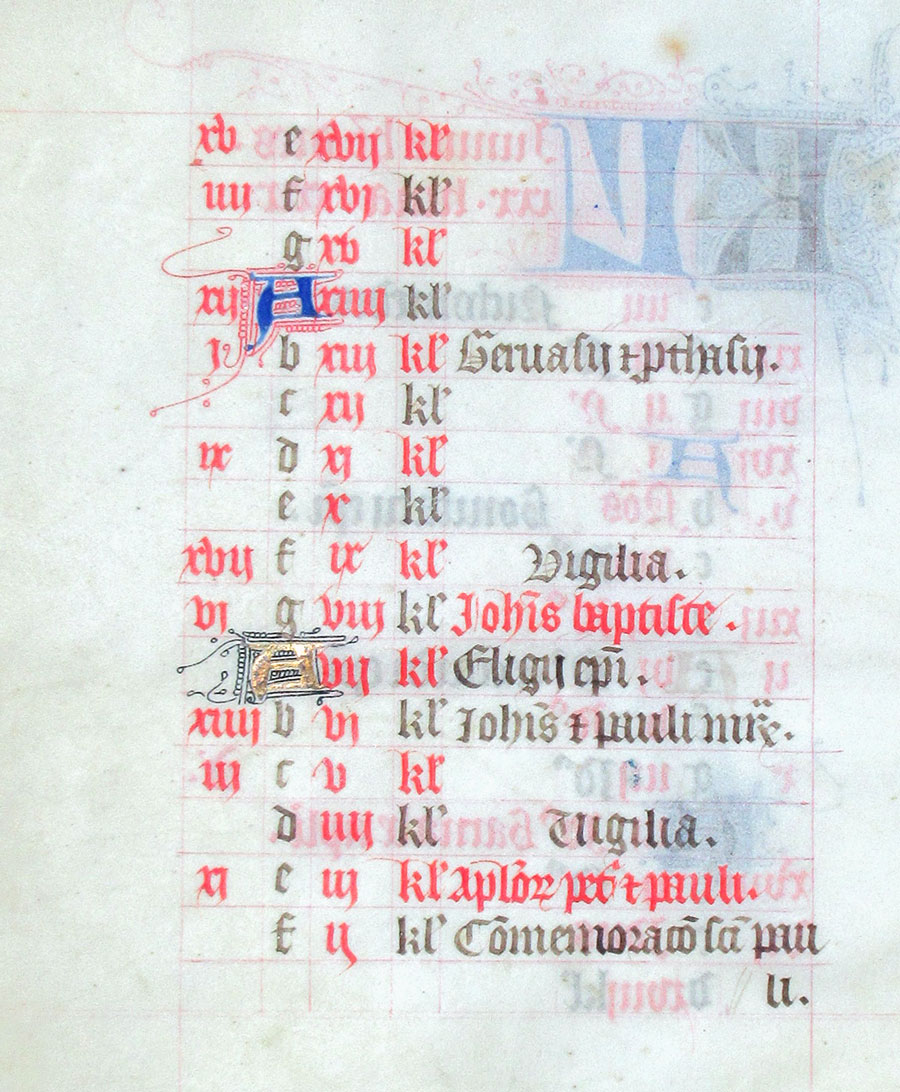 xv e xvij kl'
iiij f xvj kl'
g xv kl'
xij A xiiij kl'
j b xiij kl' Geruasij ⁊ ꝓthasij.
c xij kl'
ix d xj kl'
e x kl'
xvij f ix kl' Vigilia.
vj g viij kl' Joh̄is baptiste.
A vij kl' Eligij ep̄i.
xiiij b vj kl' Joh̄is ⁊ pauli
iij c v kl'
d iiij kl' Vigilia.
xj e iij kl' Apl̄oꝝ pet' ⁊ pauli.
f ij kl' Cōmemoracō sc̄i pau
li.